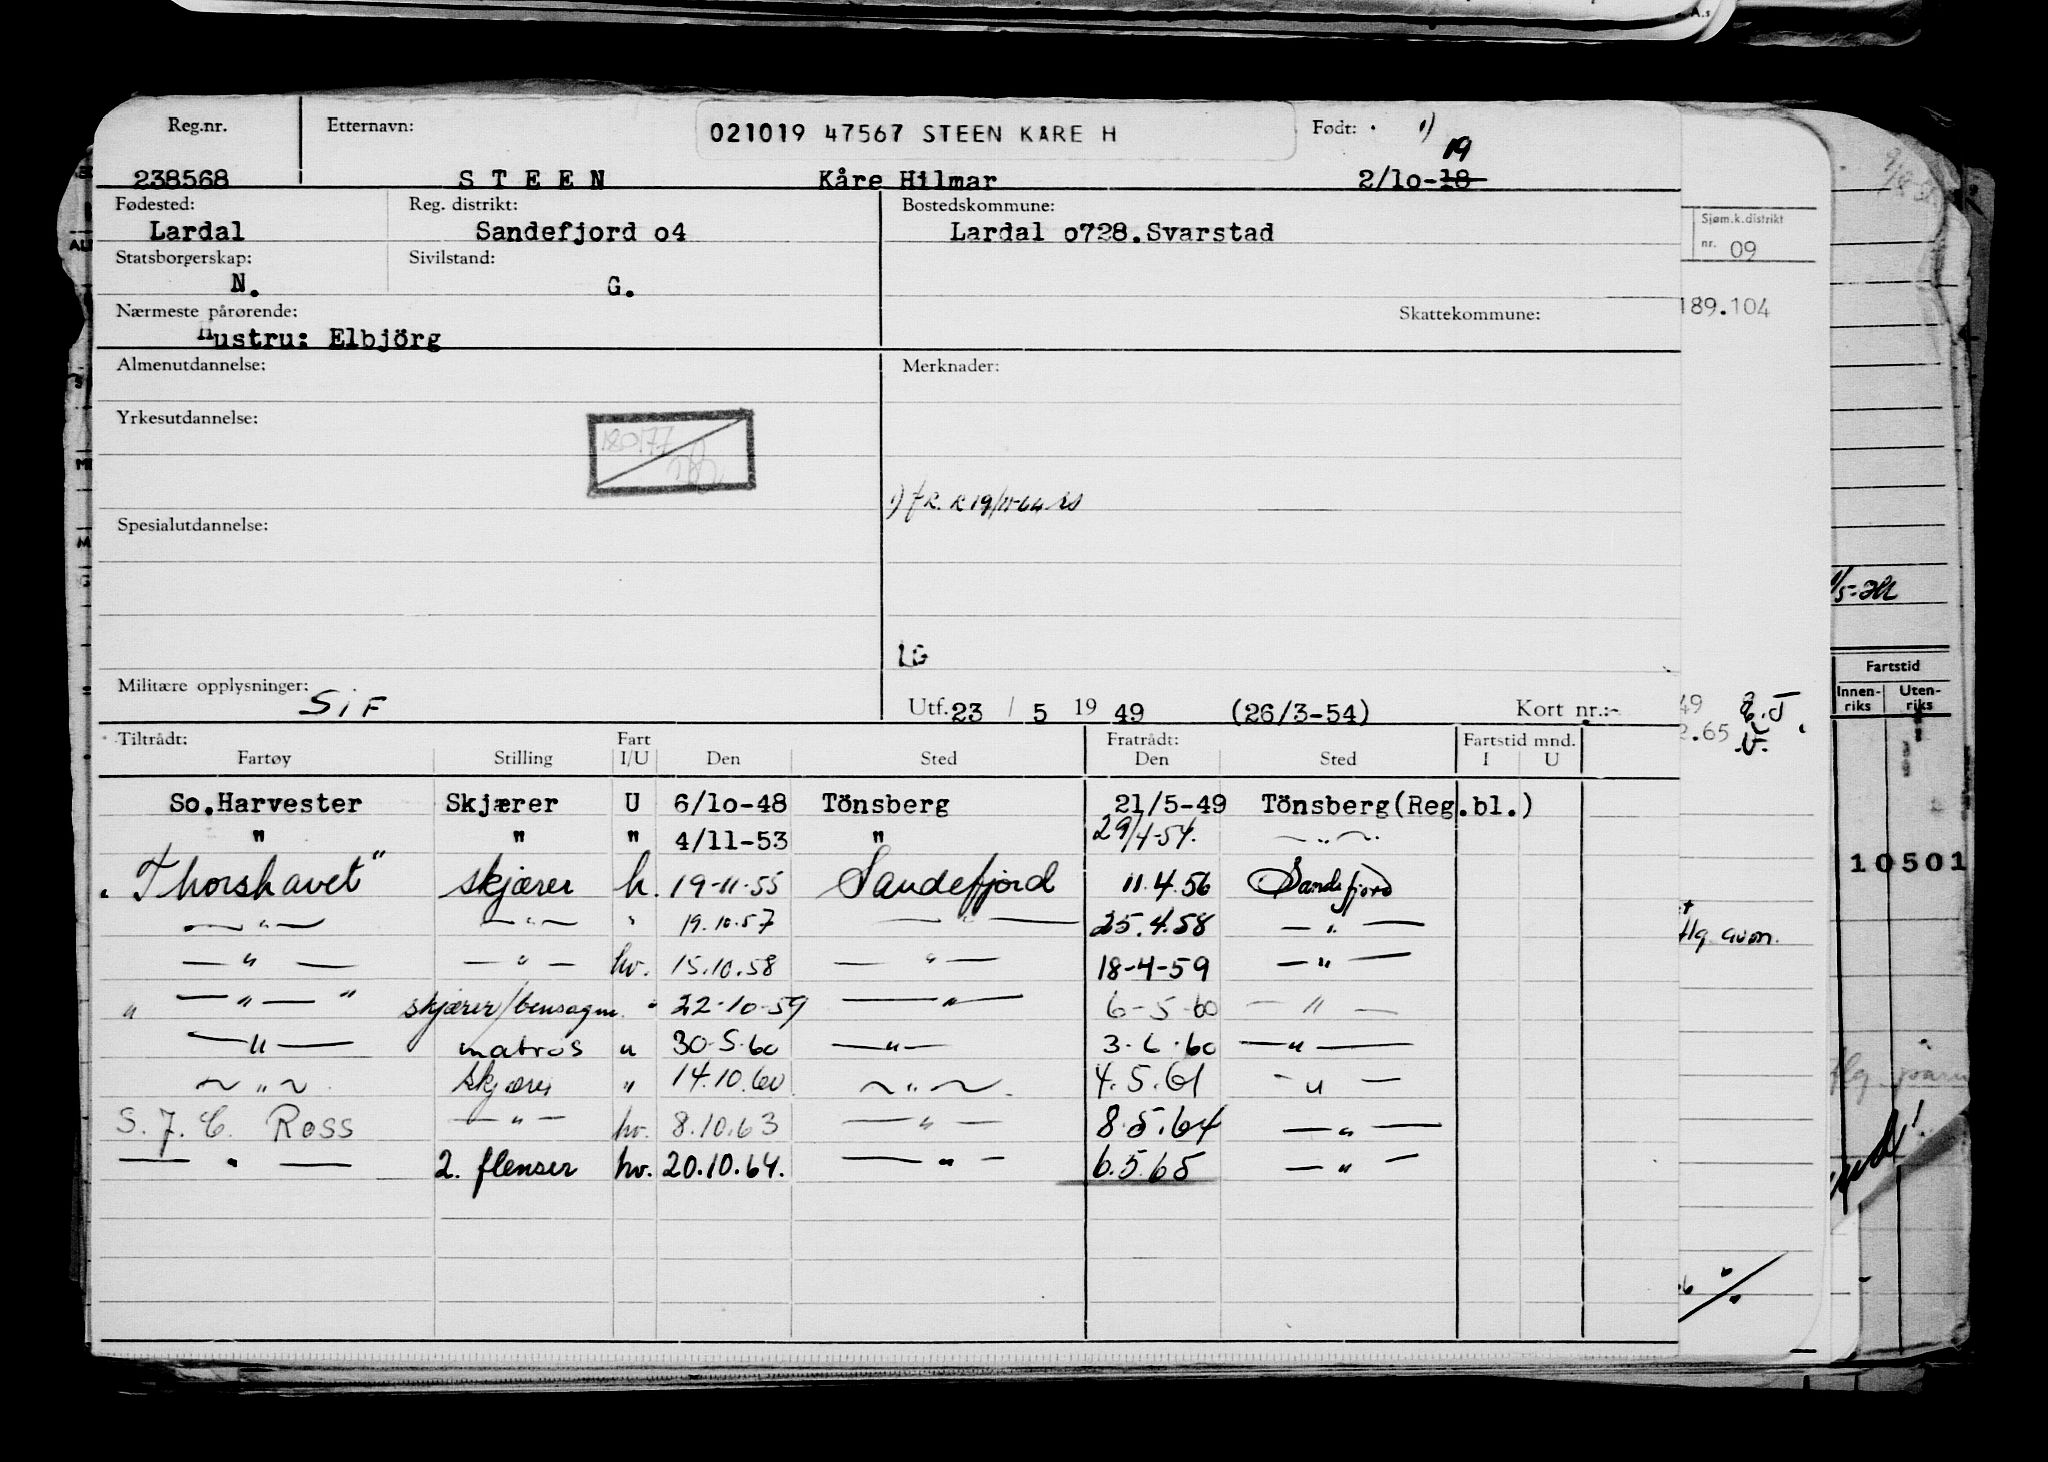 Reg.nr. Etternavn: 021019 47567 STEEN KÅRE H Født: 1)
19
238568 STEEN Kåre Hilmar 2/10-18
Fødested: Reg. distrikt: Bostedskommune:
Lardal Sandefjord o4 Lardal o728.Svarstad
Statsborgerskap: Sivilstand:
N. G.
Nærmeste pårørende: Skattekommune:
Hustru: Elbjörg
Almenutdannelse: Merknader:
Yrkesutdannelse:
180177
Spesialutdannelse:
LG
Militære opplysninger: SiF Utf. 23 / 5 19 49 (26/3-54) Kort nr.:-
Tiltrådt: Fart Fratrådt: Fartstid mnd.
Fartøy Stilling I/U Den Sted Den Sted I U
So.Harvester Skjærer U 6/10-48 Tönsberg 21/5-49 Tönsberg(Reg.bl.)
" " " 4/11-53 " 29/4-54. — " —
"Thorshavet" skjærer h. 19-11-55 Sandefjord 11.4.56 Sandefjord
— " — — " — " 19.10.57 — " — 25.4.58 — " —
— " — — " — hv. 15.10.58 — " — 18-4-59 — " —
" — " — " skjærer/bensagm. " 22-10-59 — " — 6-5-60 — " —
— " — matros u 30-5-60 — " — 3-6-60 — " —
— " — skjærer " 14.10.60 — " — 4.5.61 — " —
S. J. C. Ross — " — hv. 8.10.63 — " — 8.5.64 — " —
— " — 2. flenser hv. 20.10.64. — " — 6.5.65 — " —
Sjøm.k.distrikt
nr. 09
189.104
49
2.65
Fartstid
Innen-riks Uten-riks
10501